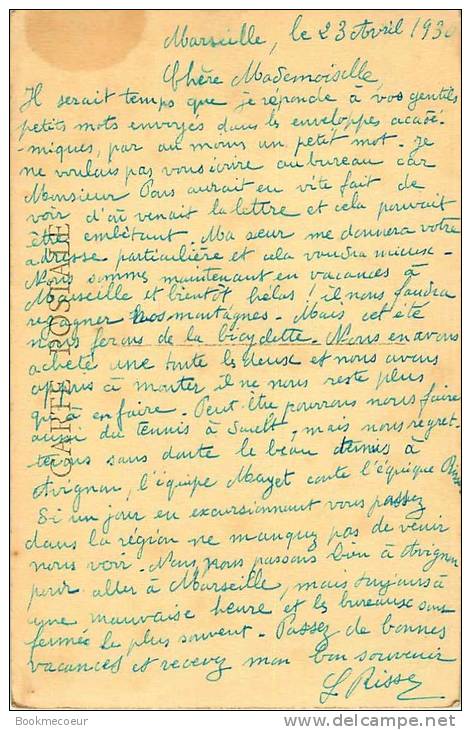 Marseille, le 23 Avril 193
Chère Mademoiselle,
Il serait temps que je réponde à vos gentils
petits mots envoyés dans les enveloppes acadé-
miques, par au moins un petit mot. Je
ne voulais pas vous écrire au bureau car
Monsieur Pons aurait eu vite fait de
voir d'où venait la lettre et cela pouvait
être embêtant. Ma sœur me donnera votre
adresse particulière et cela vaudra mieux -
Nous sommes maintenant en vacances à
Marseille et bientôt, hélas ! il nous faudra
regagner nos montagnes - Mais cet été
nous ferons de la bicyclette. Nous en avons
acheté une toute les deux et nous avons
appris à monter il ne nous reste plus
qu'à en faire. Peut être pourrons nous faire
aussi du tennis à Sault, mais nous regret-
terons sans doute le beau tennis à
Avignon, l'équipe Mayet contre l'équipe Risse
Si un jour en excursionnant vous passez
dans la région ne manquez pas de venir
nous voir. Nous nous passons bien à Avignon
pour aller à Marseille, mais toujours à
une mauvaise heure et les bureaux sont
fermés le plus souvent - Passez de bonnes
vacances et recevez mon bon souvenir
L Risse
CARTE POSTALE
Bookmecoeur
www.delcampe.net